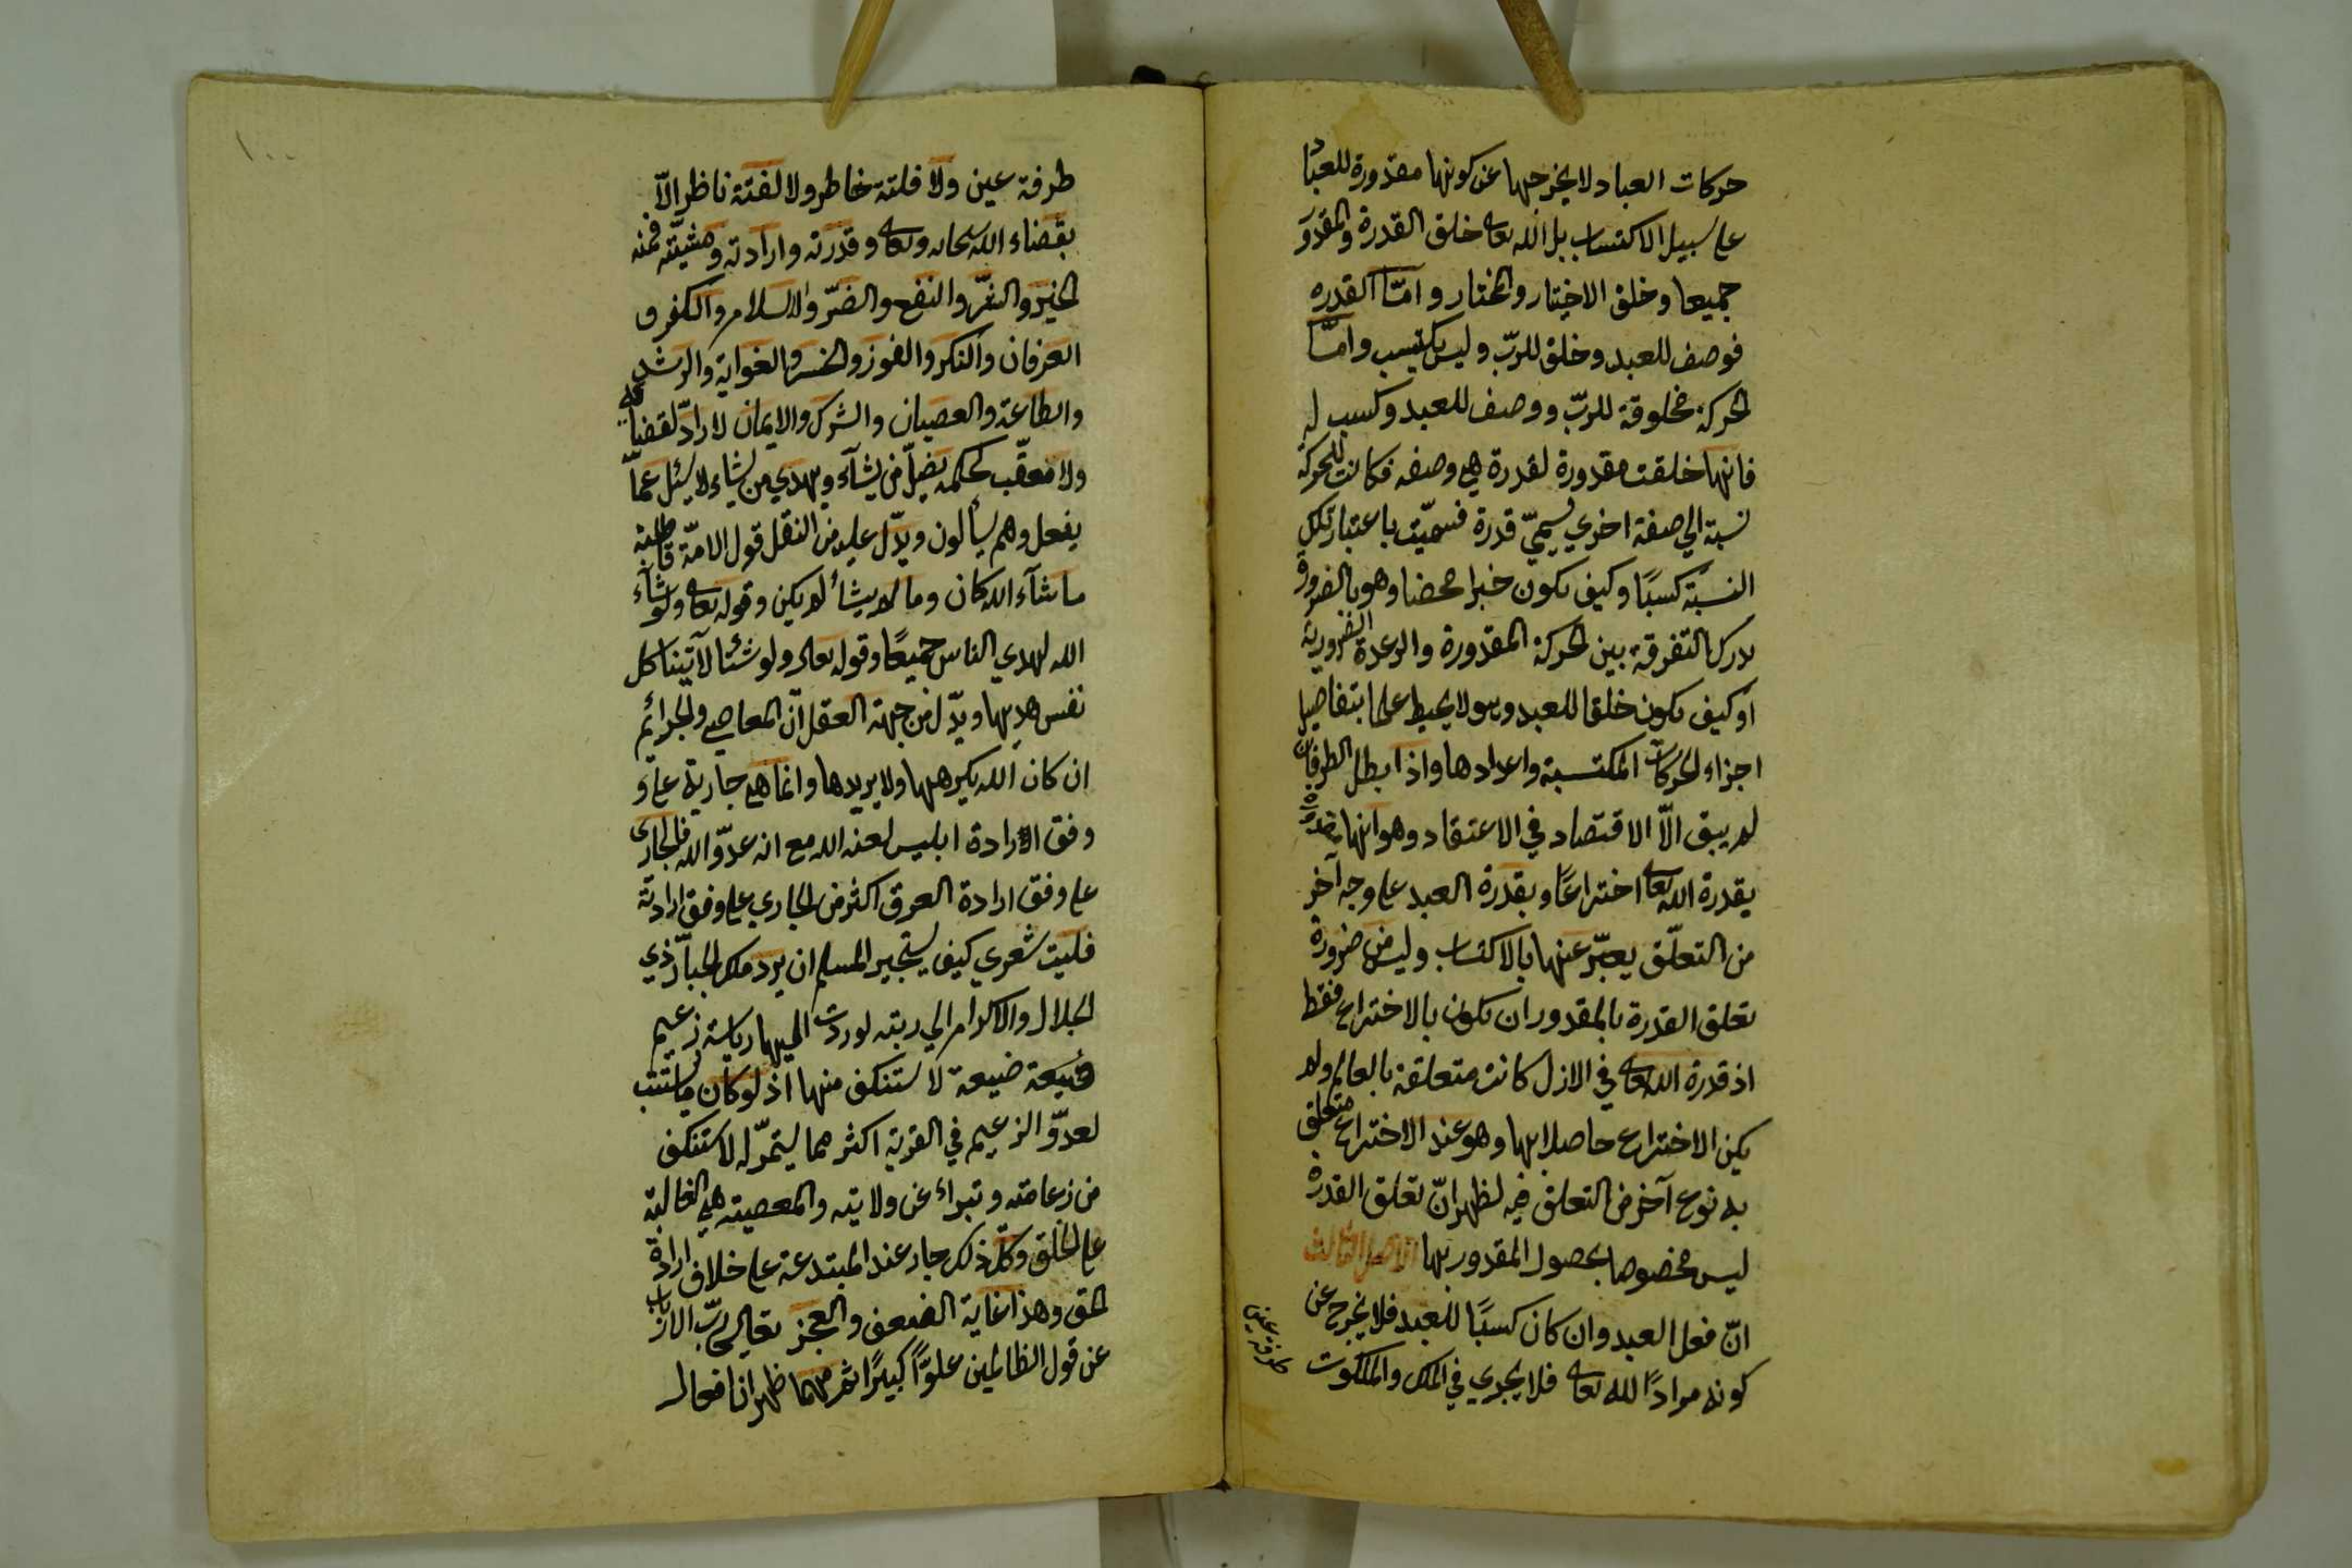 حركات العباد لا يخرجها عن كونها مقدورة للعباد
على سبيل الاكتساب بل الله تعالى خلق القدرة والمقدور
جميعا وخلق الاختيار والمختار وامّا القدره
فوصف للعبد وخلق للربّ وليس بكسب وامّا
الحركة فمخلوقة للربّ ووصف للعبد وكسب له
فانها خلقت مقدورة لقدرة هي وصفه فكانت للحركة
نسبة الي صفة اخري تسميّ قدرة فسميّت باعتبار تلك
النسبة كسبًا وكيف تكون خبرا محضا وهو بالضرورة
يدرك التفرقة بين الحركة المقدورة والرعدة الضرورية
او كيف تكون خلقا للعبد وهو لا يحيط علما بتفاصيل
اجزاء الحركات المكتسبة واعدادها واذا بطل الطرفان
لم يبق الّا الاقتصاد في الاعتقاد وهو انها مقدورة
بقدرة الله تعالى اختراعًا وبقدرة العبد على وجه آخر
من التعلّق يعبّر عنها بالاكتساب وليس من ضرورة
تعلق القدرة بالمقدور ان تكون بالاختراع فقط
اذ قدرة الله تعالى في الازل كانت متعلقة بالعالم ولم
يكن الاختراع حاصلا بها وهو عند الاختراع متعلق
به نوع آخر من التعلق فبه تظهر انّ تعلق القدرة
ليس مخصوصا بحصول المقدور بها الاصل الثالث
انّ فعل العبد وان كان كسبًا للعبد فلا يخرج عن
كونه مرادًا لله تعالى فلا يجري في الملك والملكوت
طرفة عين
١٠٠
طرفة عين ولا فلتة خاطر ولا لفتة ناظر الّا
بقضاء الله سبحانه وتعالى وقدرته وارادته ومشيّته فمنه
الخير والشرّ والنفع والضرّ والاسلام والكفر و
العرفان والنكر والفوز والخسر والغواية والرشد
والطاعة والعصيان والشرك والايمان لا رادّ لقضائه
ولا معقّب لحكمه يضلّ من يشآء ويهدي من يشاء لا يسئل عمّا
يفعل وهم يسألون ويدّل عليه من النقل قول الامّة قاطبة
ما شآء الله كان وما لم يشأ لم يكن وقوله تعالى ولو شآء
الله لهدي الناس جميعًا وقوله تعالى ولو شئنا لآتينا كل
نفس هديها ويدّل من جهة العقل انّ المعاصي والجرائم
ان كان الله يكرهها ولا يريدها وانما هي جارية على و
وفق الارادة ابليس لعنه الله مع انه عدوّ الله فالجاري
على وفق ارادة العدو اكثر من الجاري على وفق ارادته
فليت شعري كيف يستجير المسلم ان يرد ملك الجبّار ذي
الجلال والاكرام الي رتبه لو ردت اليها رياسة زعيم
ضيعة لا ستنكف منها اذ لو كان ما يستتب
لعدوّ الزعيم في القرية اكثر مما يستمرّ له لاستنكف
من زعامته وتبراء عن ولايته والمعصية هي الغالبة
على الخلق وكلّ ذلك جار عند المبتدعة على خلاف ارادة
الحق وهذا غاية الضعف والعجز تعالى ربّ الارباب
عن قول الظالمين علوًّا كبيرًا ثم مهما ظهر ان افعال